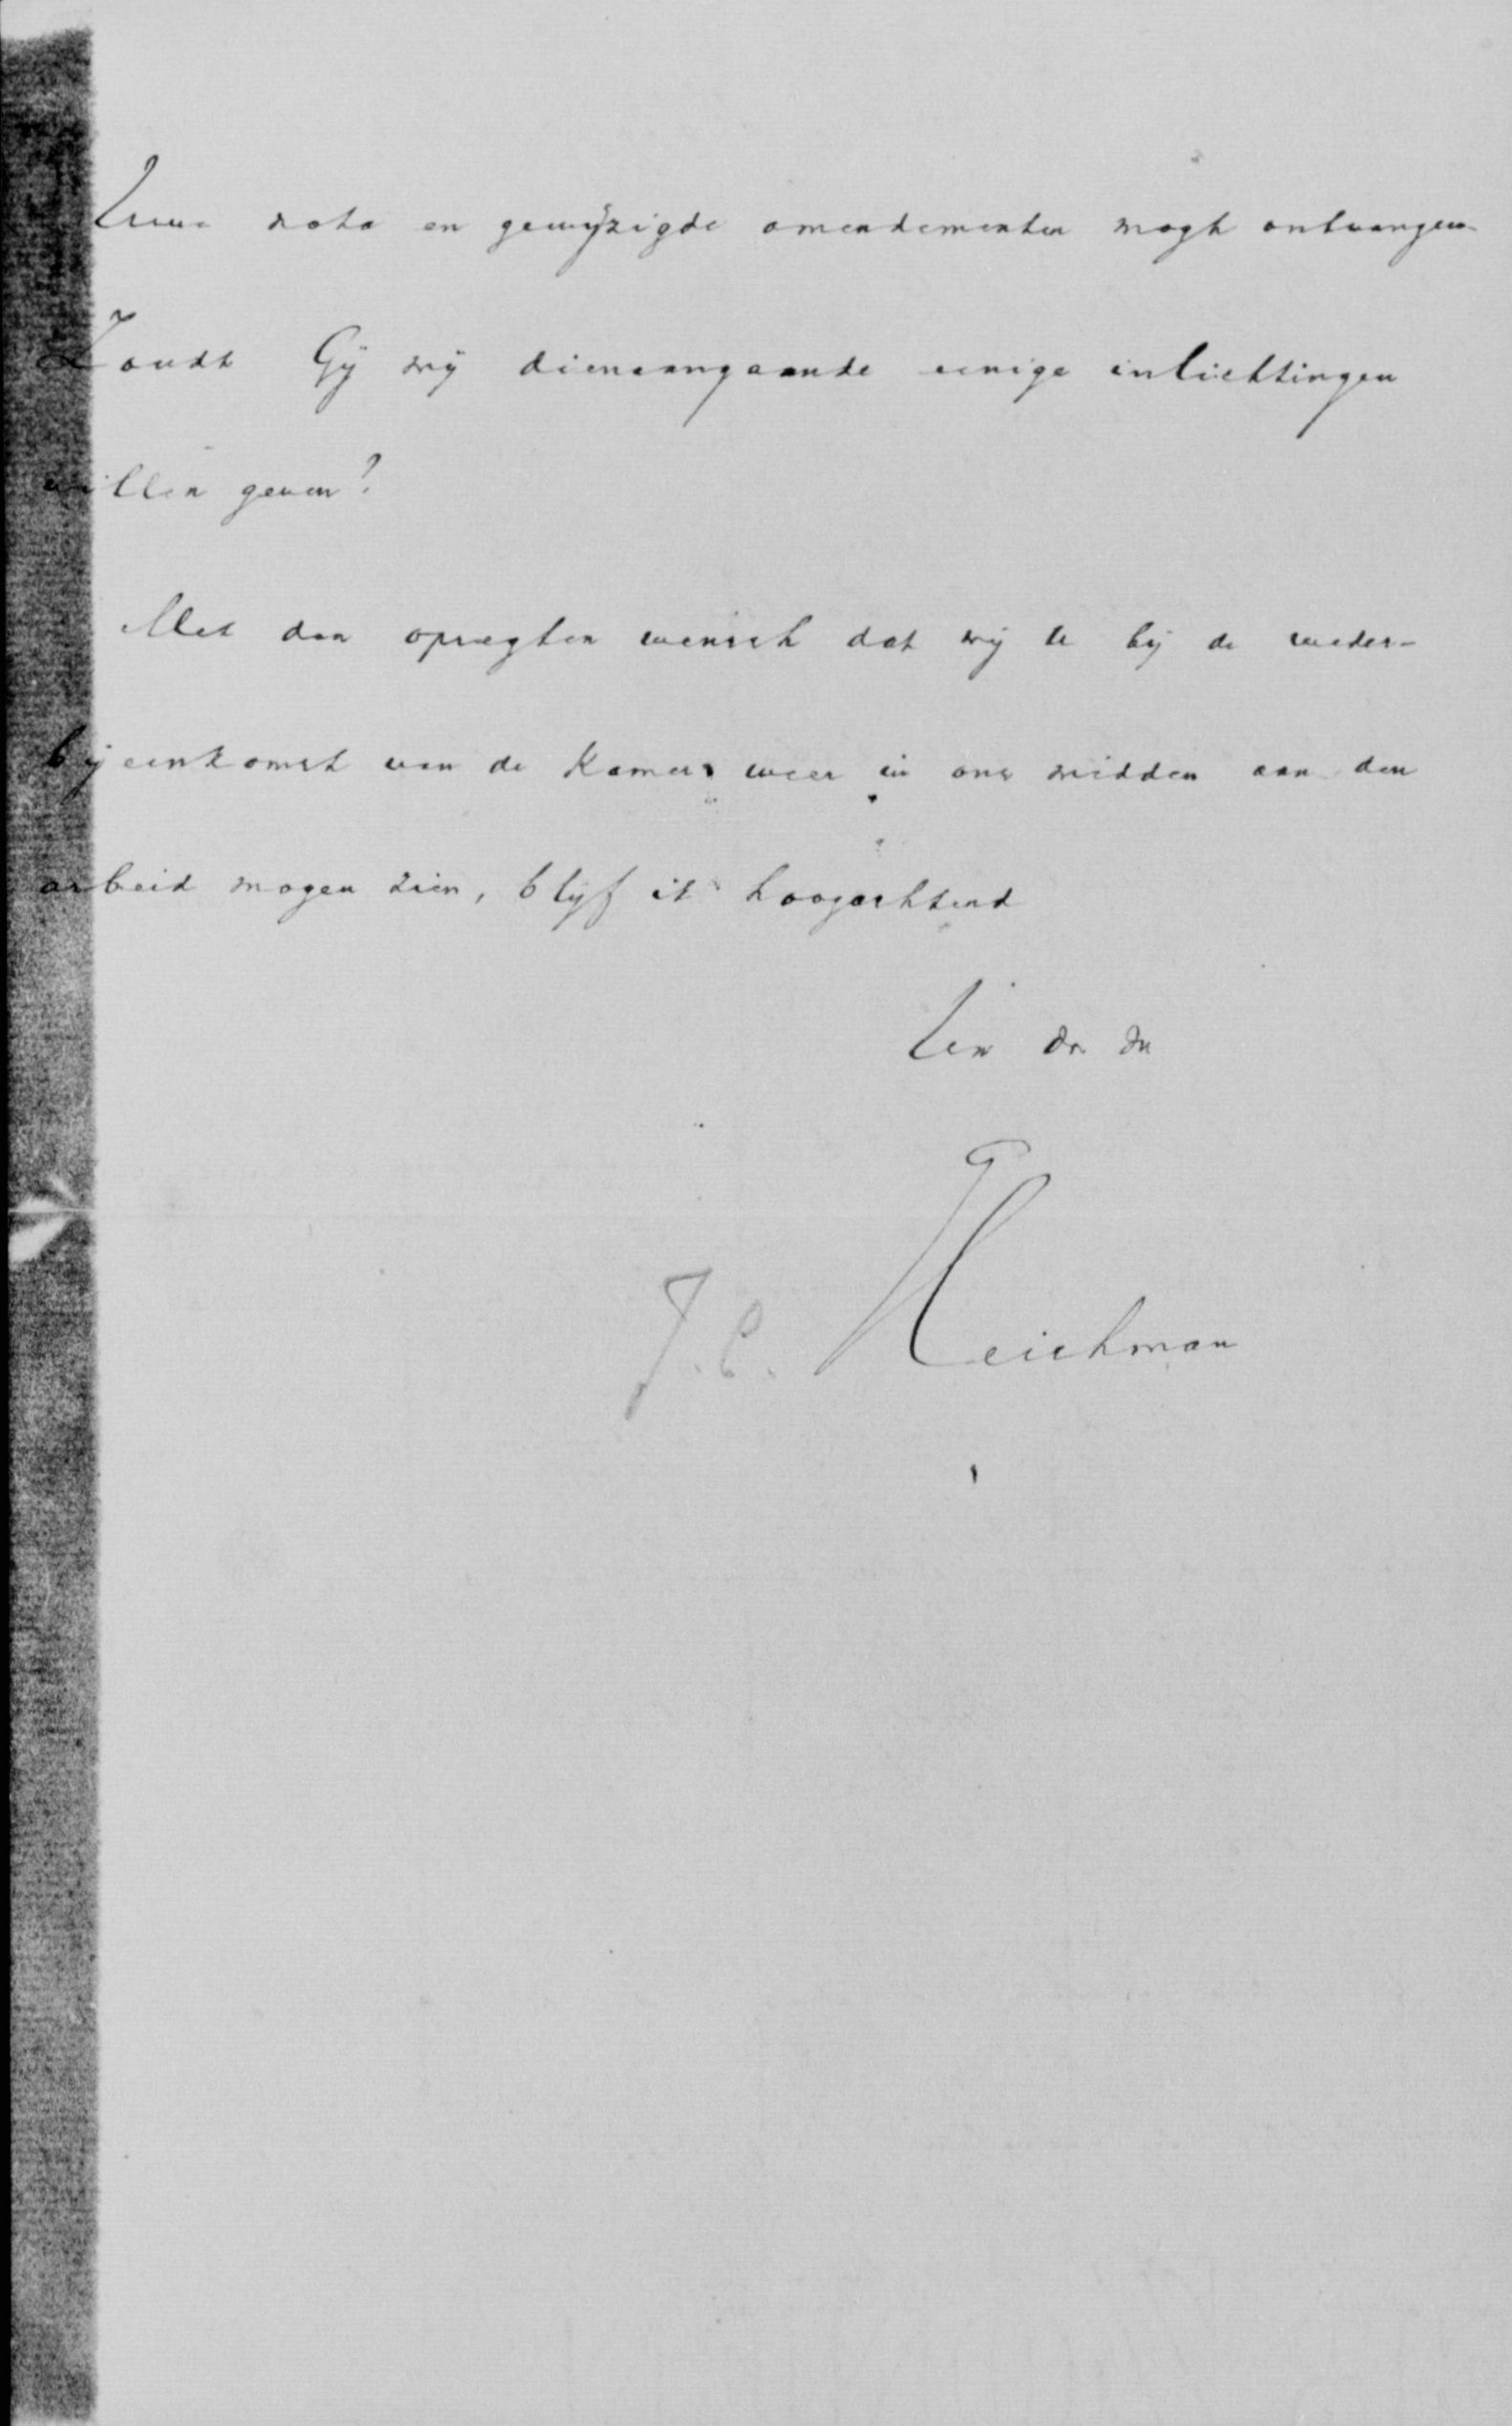 Uwe nota en gewijzigde amendementen mogt ontvangen.
Zoudt Gij mij dienaangaande eenige inlichtingen
willen geven?
Met den opregten wensch dat wij U bij de weder-
bijeenkomst van de Kamer weer in ons midden aan den
arbeid mogen zien, blijf ik hoogachtend
Uw dv dn
J. C. Reichman